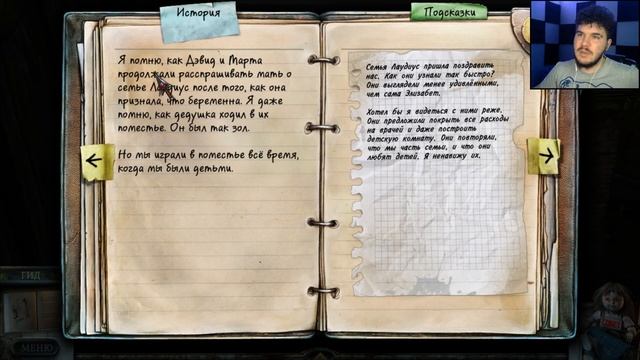 История
Подсказки
Я помню, как Дэвид и Марта
продолжали расспрашивать мать о
семье Лаудиус после того, как она
признала, что беременна. Я даже
помню, как дедушка ходил в их
поместье. Он был так зол.
Но мы играли в поместье всё время,
когда мы были детьми.
Семья Лаудиус пришла поздравить
нас. Как они узнали так быстро?
Они выглядели менее удивлёнными,
чем сама Элизабет.
Хотел бы я видеться с ними реже.
Они предложили покрыть все расходы
на врачей и даже построить
детскую комнату. Они повторяли,
что мы часть семьи, и что они
любят детей. Я ненавижу их.
ГИД
МЕНЮ